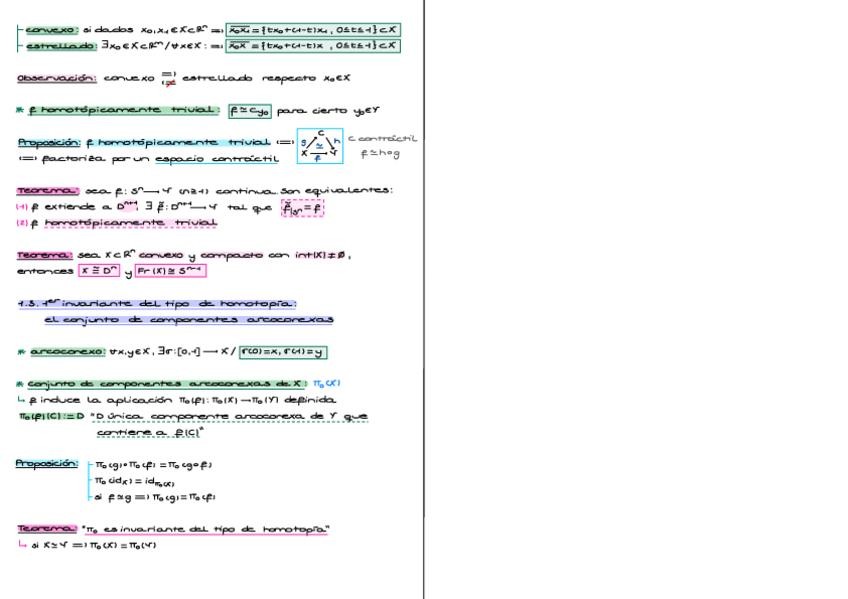 convexo: si dados x₀,x₁∈X⊂ℝⁿ ⟹ x̅₀x̅₁={tx₀+(1-t)x₁, 0≤t≤1}⊂X
estrellado: ∃x₀∈X⊂ℝⁿ/∀x∈X: ⟹ x̅₀x̅={tx₀+(1-t)x, 0≤t≤1}⊂X
Observación: convexo ⟹ ⇍ estrellado respecto x₀∈X
* f homotópicamente trivial: f≃c_y₀ para cierto y₀∈Y
Proposición: f homotópicamente trivial ⟺ C g ≃ h X f Y C contráctil
⟺ factoriza por un espacio contráctil f≃h∘g
Teorema: sea f: Sⁿ→Y (n≥1) continua. Son equivalentes:
(1) f extiende a Dⁿ⁺¹: ∃ f̃: Dⁿ⁺¹→Y tal que f̃|Sⁿ=f
(2) f homotópicamente trivial
Teorema: sea X⊂ℝⁿ convexo y compacto con int(X)≠∅,
entonces X≅Dⁿ y Fr(X)≅Sⁿ⁻¹
1.3. 1er invariante del tipo de homotopía:
el conjunto de componentes arcoconexas
* arcoconexo: ∀x,y∈X, ∃σ:[0,1]→X/ σ(0)=x, σ(1)=y
* conjunto de componentes arcoconexas de X: π₀(X)
↳ f induce la aplicación π₀(f): π₀(X)→π₀(Y) definida
π₀(f)(C):=D "D única componente arcoconexa de Y que
contiene a f(C)"
Proposición: π₀(g)∘π₀(f)=π₀(g∘f)
π₀(id_X)=id_π₀(X)
si f≃g ⟹ π₀(g)=π₀(f)
Teorema: "π₀ es invariante del tipo de homotopía"
↳ si X≃Y ⟹ π₀(X)=π₀(Y)